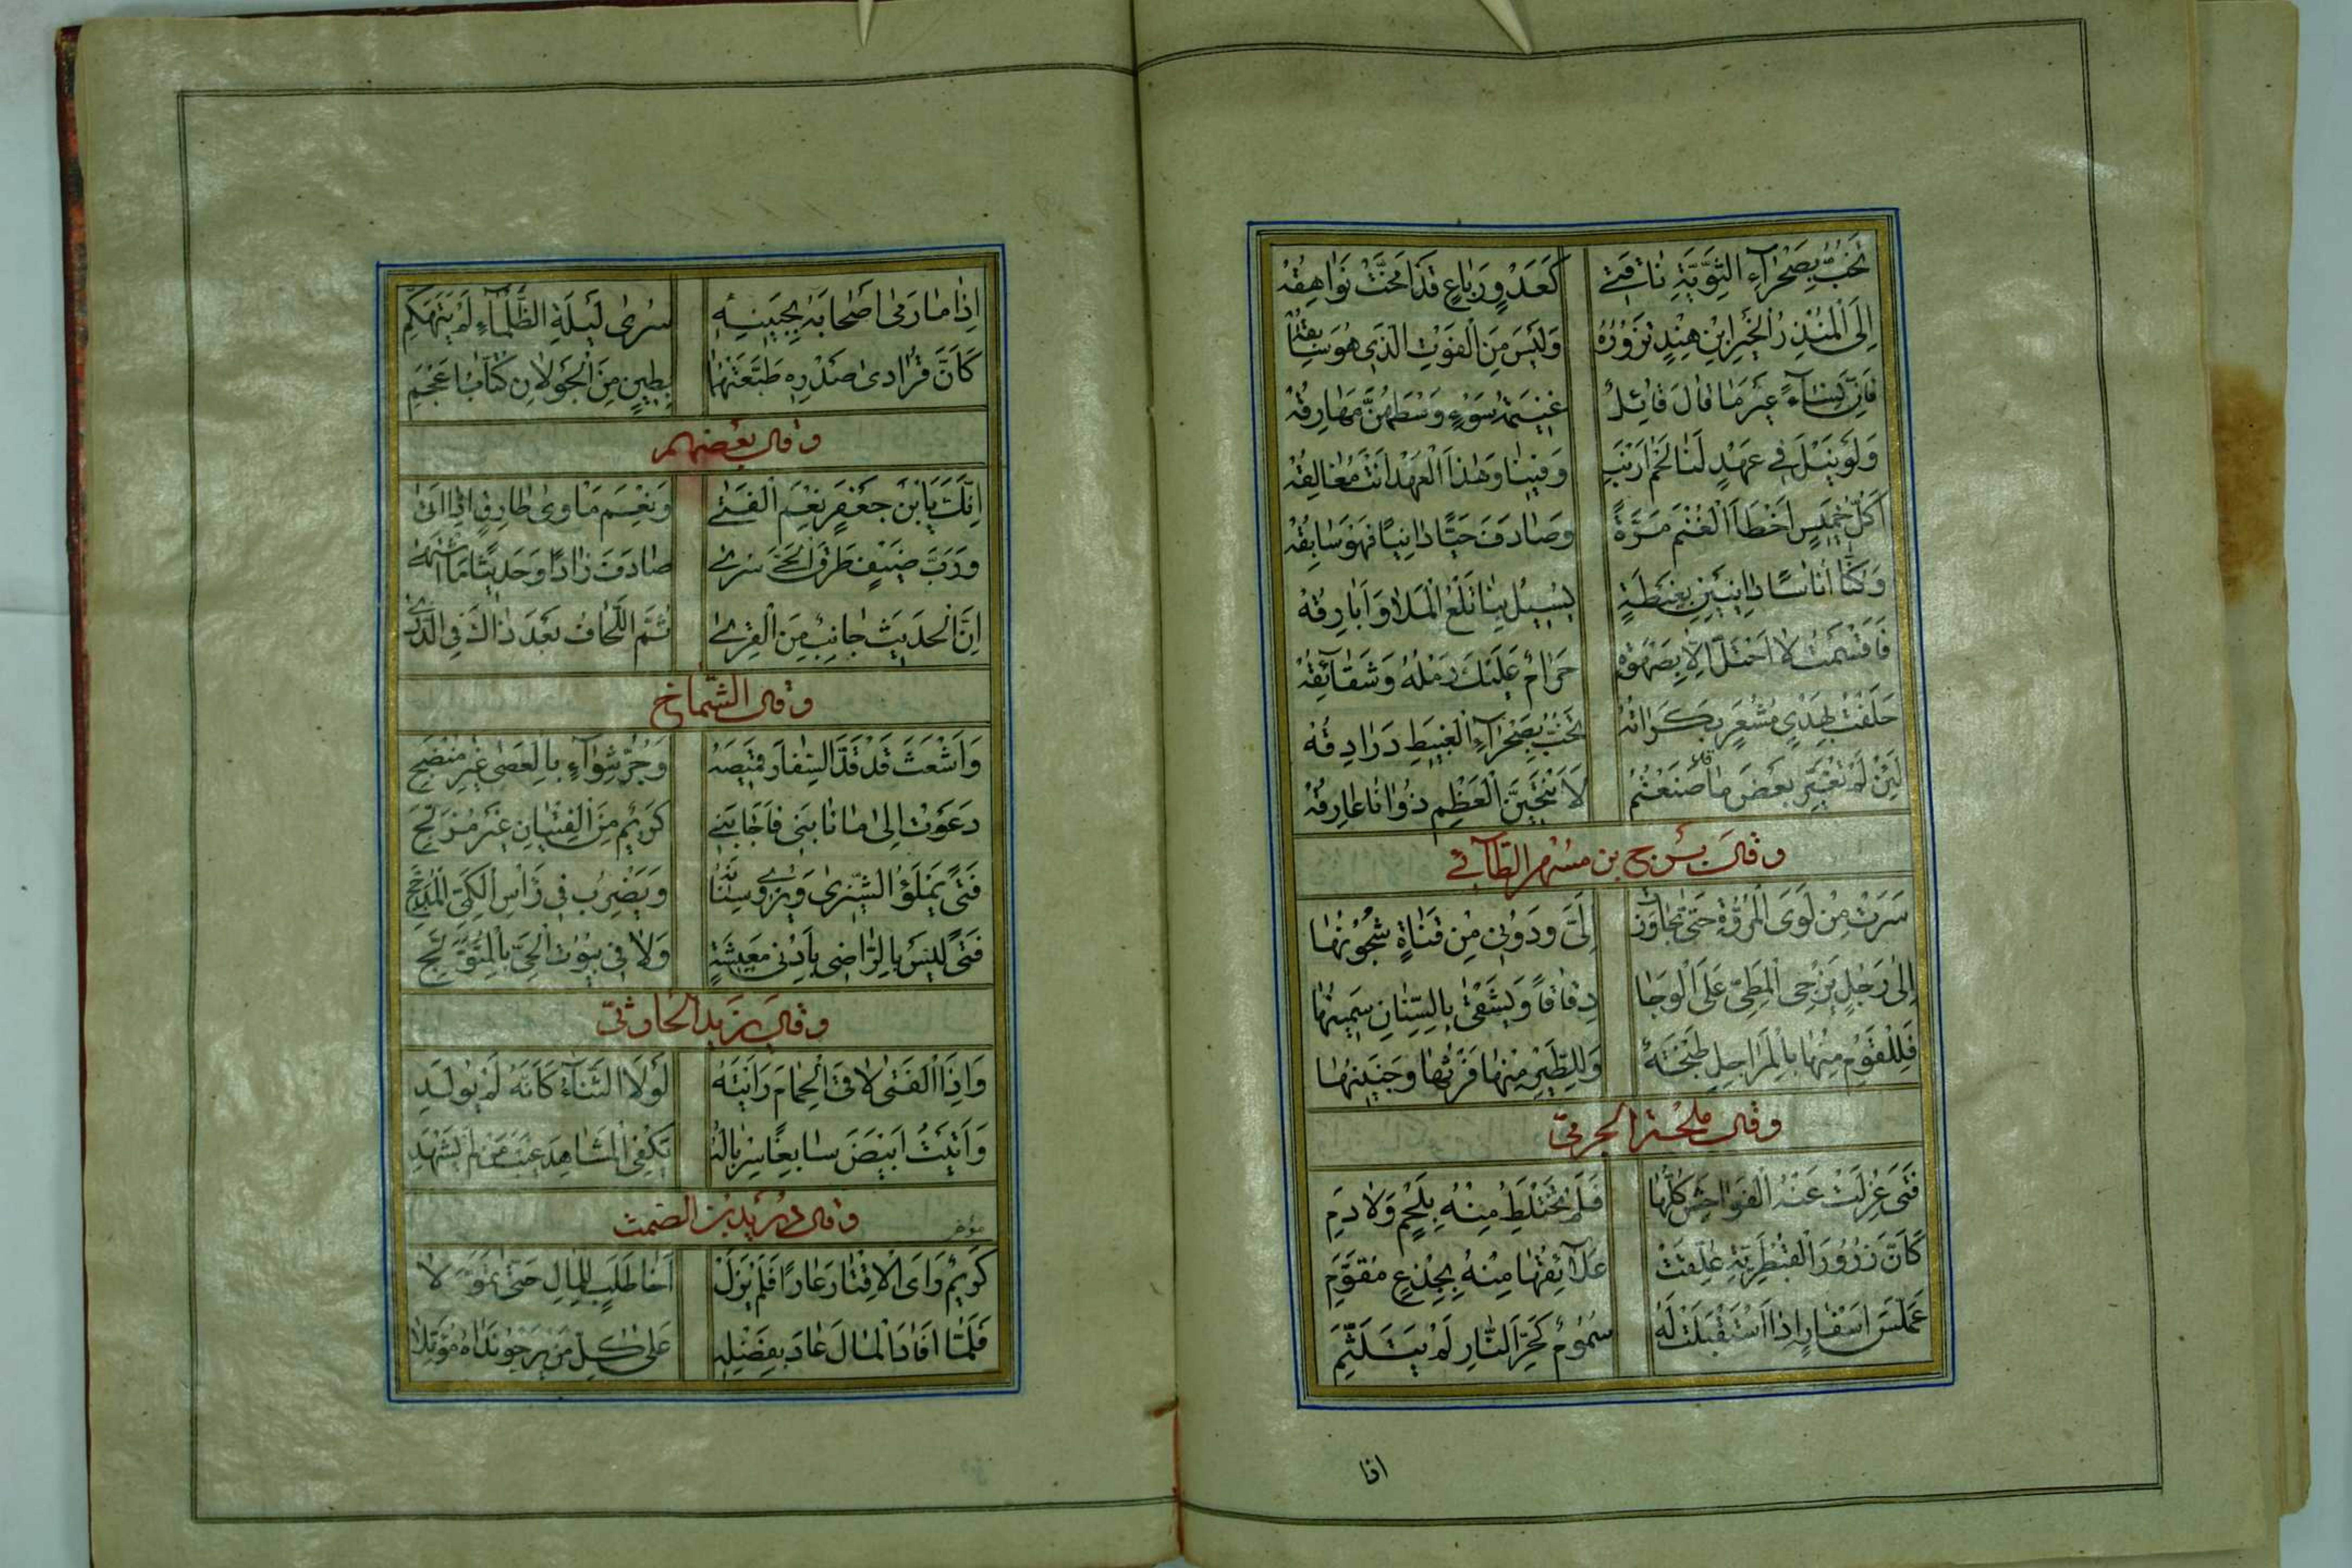 تَخُبُّ بِصَحْرَآءِ الثَّوِيَّةِ نَاقَتِي كَعَدْوِ رَبَاعٍ قَدْ اَمَخَّتْ نَوَاهِقُهْ
اِلَى الْمُنْذِرِ الْخَيْرِ ابْنِ هِنْدٍ تَزُورُهُ وَلَيْسَ مِنَ الْفَوْتِ الَّذِي هُوَ سَابِقُهْ
فَاِنَّ نِسَاءً غَيْرَ مَا قَالَ قَائِلٌ غَنِيمَةُ سَوْءٍ وَسْطَهُنَّ مَهَارِقُهْ
وَلَوْ نِيلَ فِي عَهْدٍ لَنَا لَحْمُ اَرْنَبٍ وَفَيْنَا وَهٰذَا الْعَهْدُ اَنْتَ مُغَالِقُهْ
اَكُلُّ خَمِيسٍ اَخْطَأَ الْغُنْمَ مَرَّةً وَصَادَفَ حَيًّا دَانِيًا فَهْوَ سَابِقُهْ
وَكُنَّا اُنَاسًا دَايِنِينَ بِغِبْطَةٍ يَسِيلُ بِنَا تَلْعُ الْمَلَا وَاَبَارِقُهْ
فَاَقْسَمْتُ لَا اَحْتَلُّ اِلَّا بِصَهْوَةٍ حَرَامٌ عَلَيْكَ رَمْلُهُ وَشَقَآئِقُهْ
حَلَفْتُ بِهَدْيٍ مُشْعَرٍ بَكَرَاتُهُ تَخُبُّ بِصَحْرَآءِ الْغَبِيطِ دَرَادِقُهْ
لَئِنْ لَمْ تُغَيِّرْ بَعْضَ مَا قَدْ صَنَعْتُمُ لَاَنْتَحِيَنَّ الْعَظْمَ ذُو اَنَا عَارِقُهْ
وقال بُرج بن مسهر الطآئي
سَرَتْ مِنْ لَوَى الْمَرُّوتِ حَتَّى تَجَاوَزَتْ اِلَيَّ وَدُونِي مِنْ قَنَاةٍ شُجُونُهَا
اِلٰى رَجُلٍ يُزْجِي الْمَطِيَّ عَلَى الْوَجَا دِقَاقًا وَيَشْقٰى بِالسِّنَانِ سَمِينُهَا
فَلِلْقَوْمِ مِنْهَا بِالْمَرَاجِلِ طَبْخَةٌ وَلِلطَّيْرِ مِنْهَا فَرْثُهَا وَجَنِينُهَا
وقال ملحة الجرمي
فَتًى عُزِلَتْ عَنْهُ الْفَوَاحِشُ كُلُّهَا فَلَمْ تَخْتَلِطْ مِنْهُ بِلَحْمٍ وَلَا دَمِ
كَاَنَّ زُرُورَ الْقُبْطُرِيَّةِ عُلِّقَتْ عَلَآئِقُهَا مِنْهُ بِجِذْعٍ مُقَوَّمِ
عَمَلَّسُ اَسْفَارٍ اِذَا اسْتَقْبَلَتْ لَهُ سَمُومٌ كَحَرِّ النَّارِ لَمْ يَتَلَثَّمِ
اذا
اِذَا مَا رَمٰى اَصْحَابَهُ بِجَبِينِهِ سُرٰى لَيْلَةِ الظَّلْمَآءِ لَمْ يَتَهَكَّمِ
كَاَنَّ قُرَادَيْ صَدْرِهِ طَبَّعَتْهُمَا بِطِينٍ مِنَ الْجَوْلَانِ كُتَّابُ اَعْجَمِ
وقال بعضهم
اِنَّكَ يَا ابْنَ جَعْفَرٍ نِعْمَ الْفَتٰى وَنِعْمَ مَاْوٰى طَارِقٍ اِذَا اَتٰى
وَرُبَّ ضَيْفٍ طَرَقَ الْحَيَّ سُرٰى صَادَفَ زَادًا وَحَدِيثًا مَا اشْتَهٰى
اِنَّ الْحَدِيثَ جَانِبٌ مِنَ الْقِرٰى ثُمَّ اللِّحَافُ بَعْدَ ذَاكَ فِي الذَّرٰى
وقال الشماخ
وَاَشْعَثَ قَدْ قَدَّ السِّفَارُ قَمِيصَهُ وَجَرُّ شِوَآءٍ بِالْعَصٰى غَيْرِ مُنْضَجِ
دَعَوْتُ اِلٰى مَا نَابَنِي فَاَجَابَنِي كَرِيمٌ مِنَ الْفِتْيَانِ غَيْرُ مُزَلَّجِ
فَتًى يَمْلَؤُ الشِّيزٰى وَيُرْوِي سِنَانَهُ وَيَضْرِبُ فِي رَاْسِ الْكَمِيِّ الْمُدَجَّجِ
فَتًى لَيْسَ بِالرَّاضِي بِاَدْنٰى مَعِيشَةٍ وَلَا فِي بُيُوتِ الْحَيِّ بِالْمُتَوَلِّجِ
وقال يزيد الحارثي
وَاِذَا الْفَتٰى لَاقَى الْحِمَامَ رَاَيْتَهُ لَوْلَا الثَّنَآءُ كَاَنَّهُ لَمْ يُولَدِ
وَاَتَيْتُ اَبْيَضَ سَابِغًا سِرْبَالُهُ يَكْفِي الْمَشَاهِدَ غَيْبَ مَنْ لَمْ يَشْهَدِ
وقال دريد بن الصمت
مؤخر
كَرِيمٌ رَاَى الْاِقْتَارَ عَارًا فَلَمْ يَزَلْ اَخَا طَلَبٍ لِلْمَالِ حَتّٰى تَمَوَّلَا
فَلَمَّا اَفَادَ الْمَالَ عَادَ بِفَضْلِهِ عَلٰى كُلِّ مَنْ يَرْجُو نَدَاهُ مُؤَمِّلَا